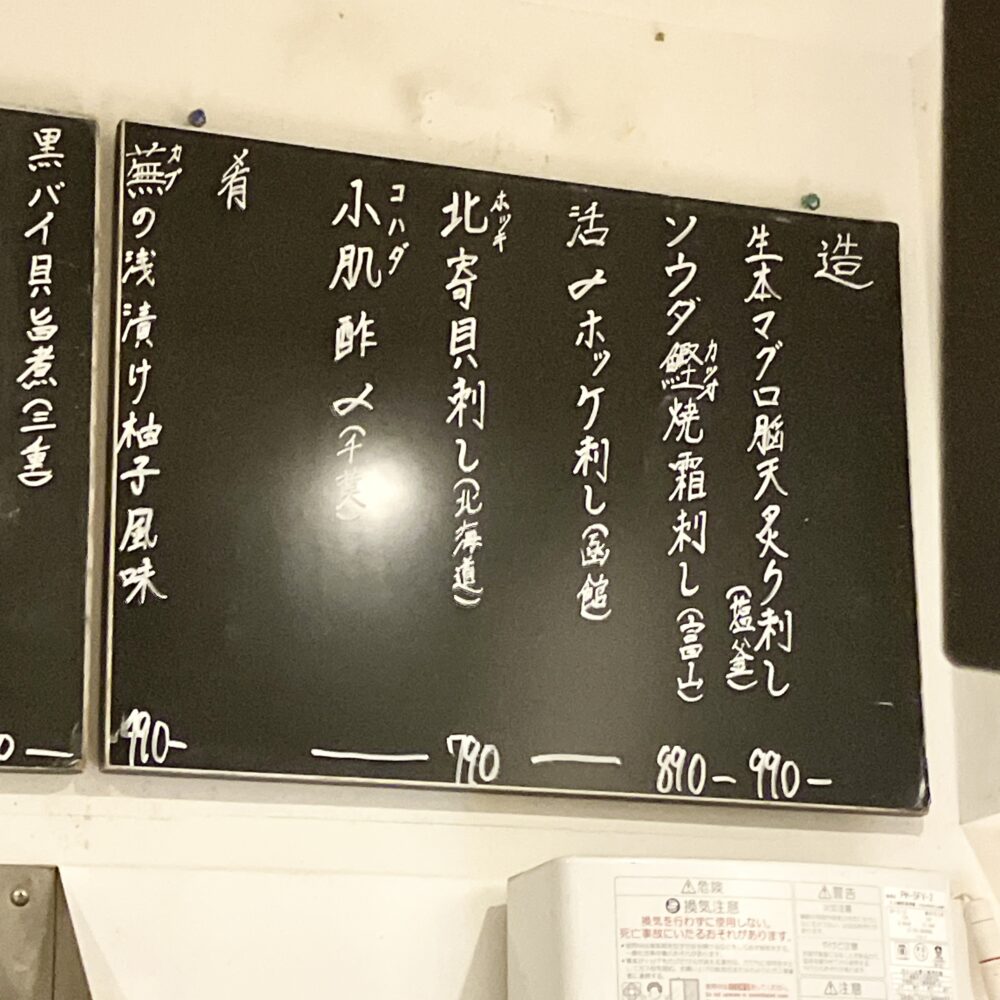 造
生本マグロ脳天炙り刺し(塩釜) 990-
ソウダ鰹焼霜刺し(富山) 890-
カツオ
活〆ホッケ刺し(函館)
北寄貝刺し(北海道) 790
ホッキ
小肌酢〆(千葉)
コハダ
肴
蕪の浅漬け柚子風味 490-
カブ
黒バイ貝旨煮(三重)
危険
換気注意
換気を行わずに使用しない。
死亡事故にいたるおそれがあります。
警告
注意